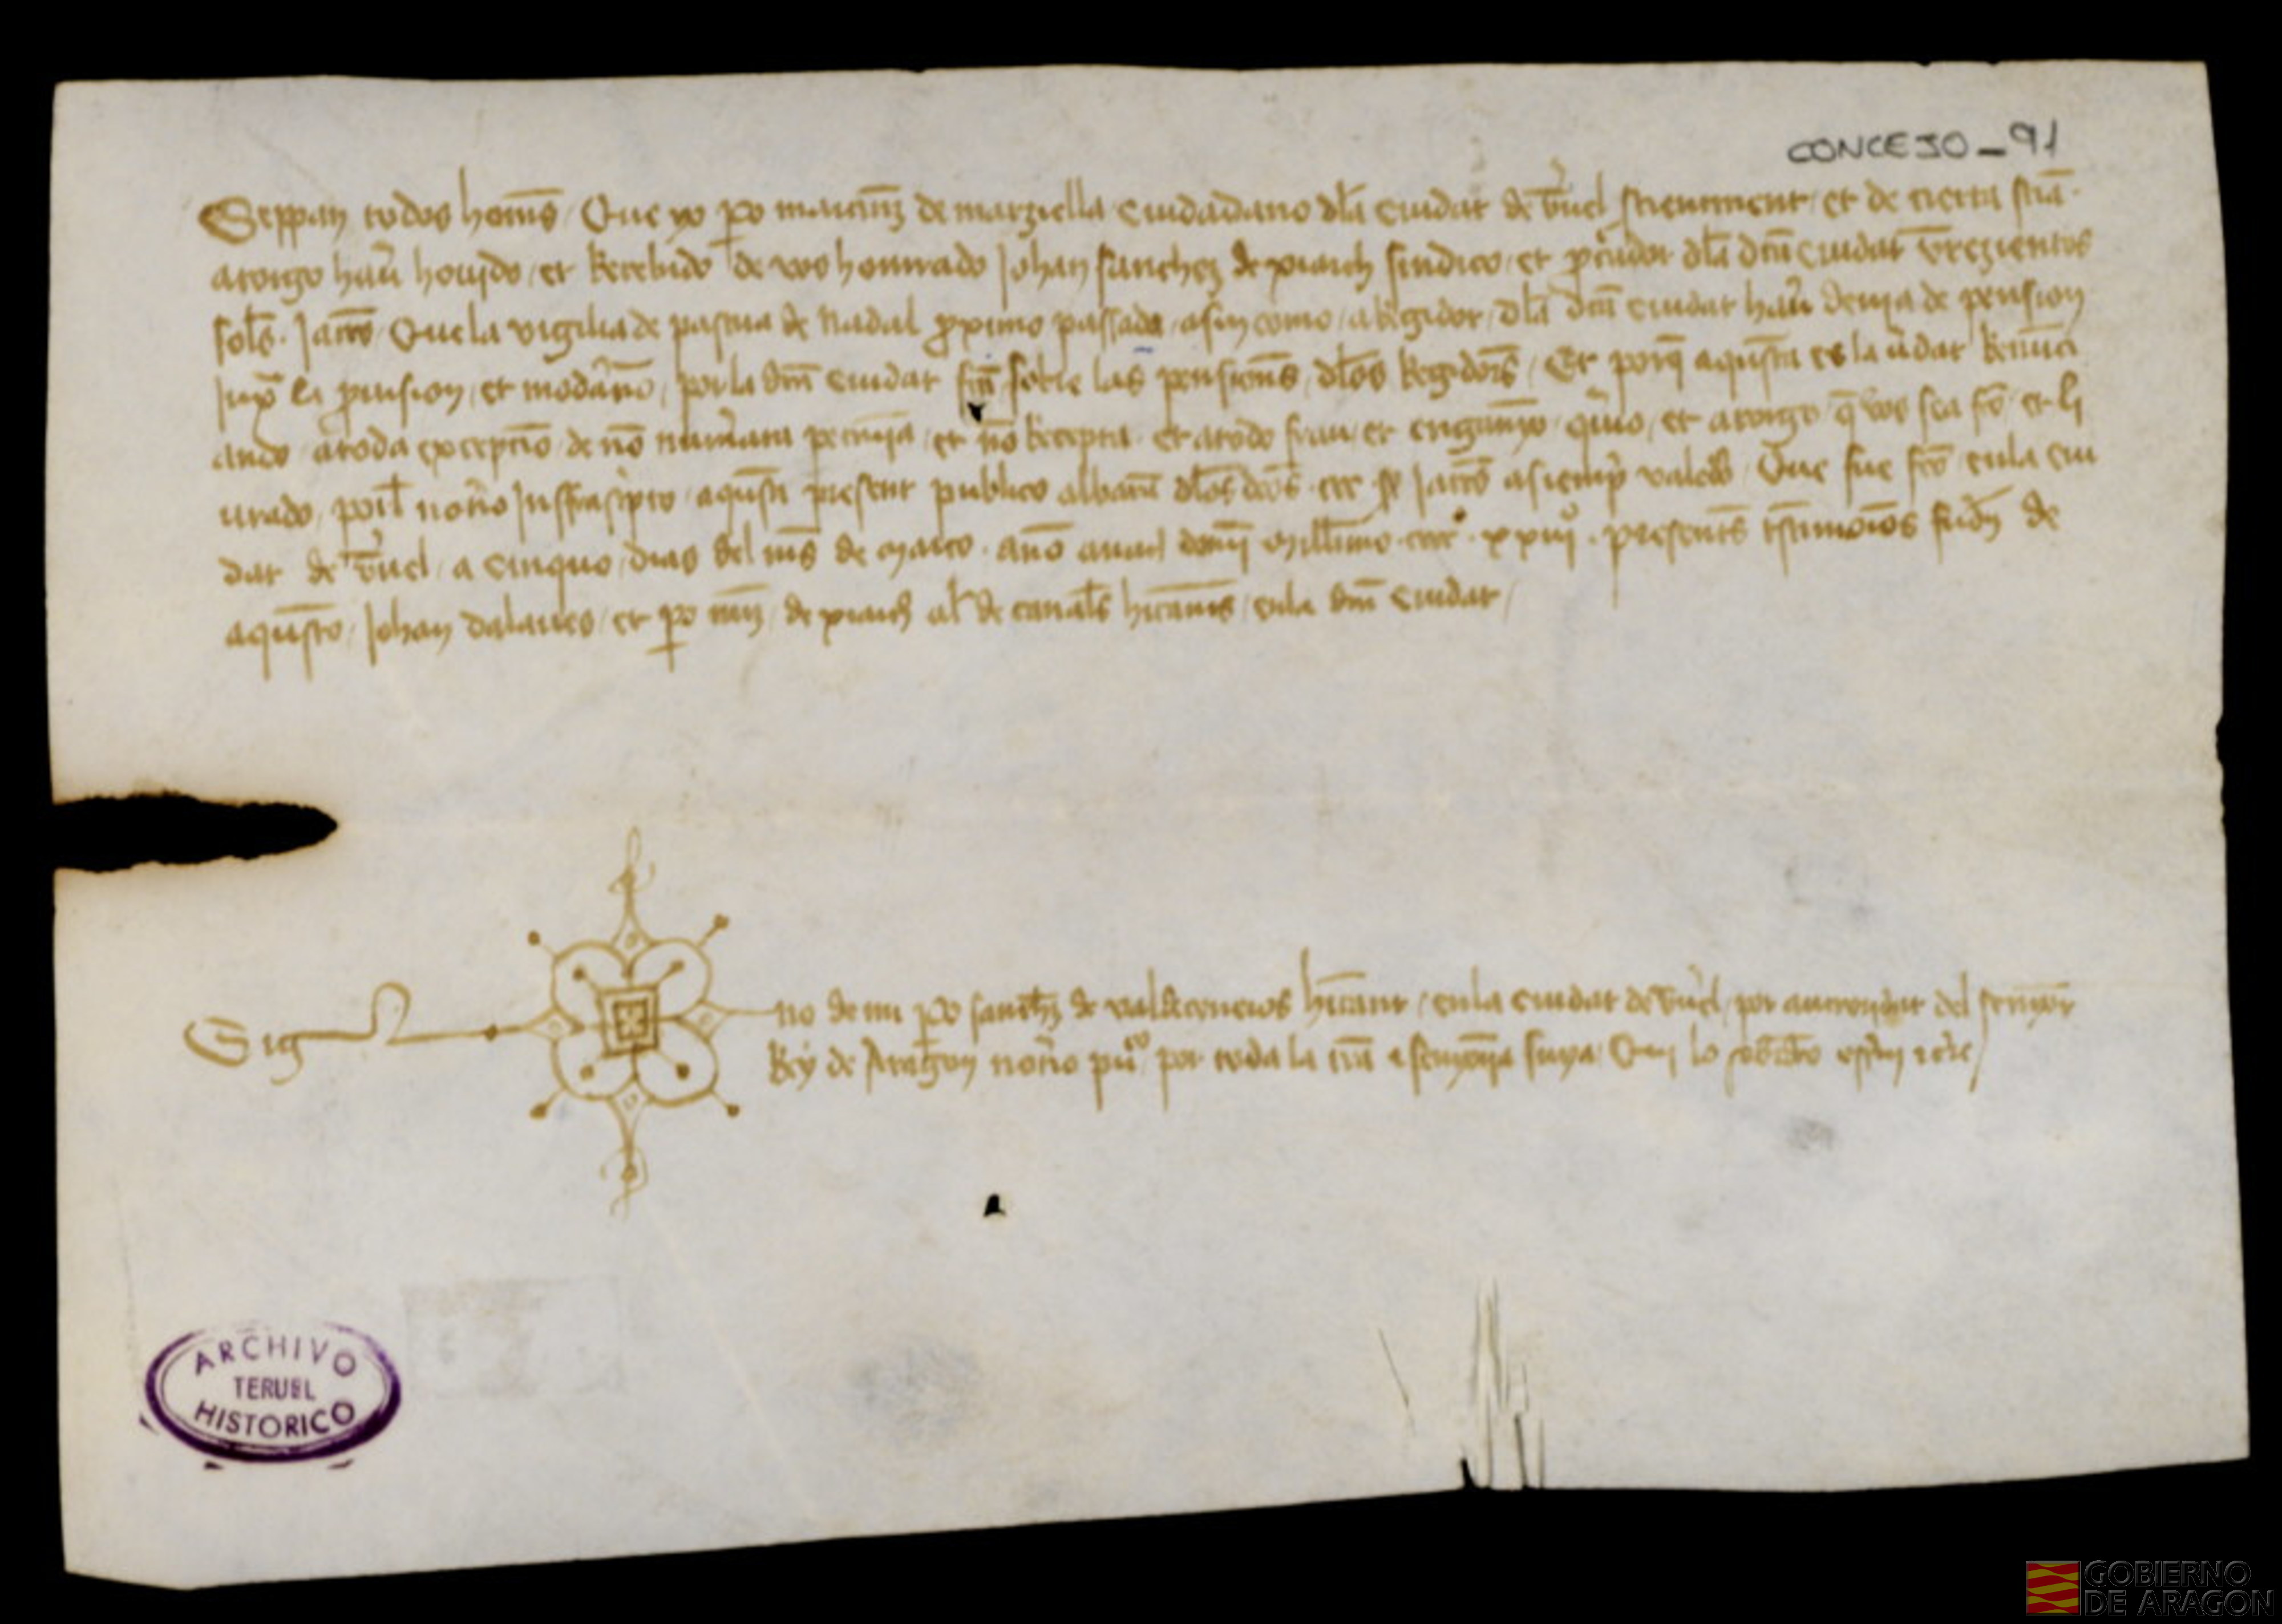 CONCEJO_91
Seppan todos homes Que yo po martinez de marziella Ciudadano dla Ciudat de teruel scientment et de cierta scia
atorgo hauer houido et Recebido de vos honrrado Johan sanchez de xiarch sindico et procurador dla dta Ciudat trezientos
sols Jaccs Que la vigilia de pascua de Nadal proximo passada asin como a Regidor dla dta Ciudat hauer deuia de pension
Juxta la prouision et por la dta Ciudat sobre las pensiones dlos Regidores Et porq aquesta es la verdat Renunci
ando a toda excepcio de no numerata pecunia et no Recepta et a todo frau et enganyo quiero et atorgo q vos sea fto et li
urado por el notario Infrascripto aquesti present publico albaran dlos ditos ccc ss Jaccs a siempre valedero Que fue fto en la Ciu
dat de teruel a Cinquo dias del mes de março ano domini Millesimo cccc xxiiio presents testimonios fueron de
aquesto Johan dalaues et po mrz de xiarch al de canales hitants en la dta Ciudat
Sig no de mi po sanchez de valdeconeios hitant en la Ciudat de teruel por auctoridat del senyor
Rey de Aragon notario puco por toda la tierra e senyoria suya Qui lo sobredito
ARCHIVO
TERUEL
HISTORICO
GOBIERNO
DE ARAGON